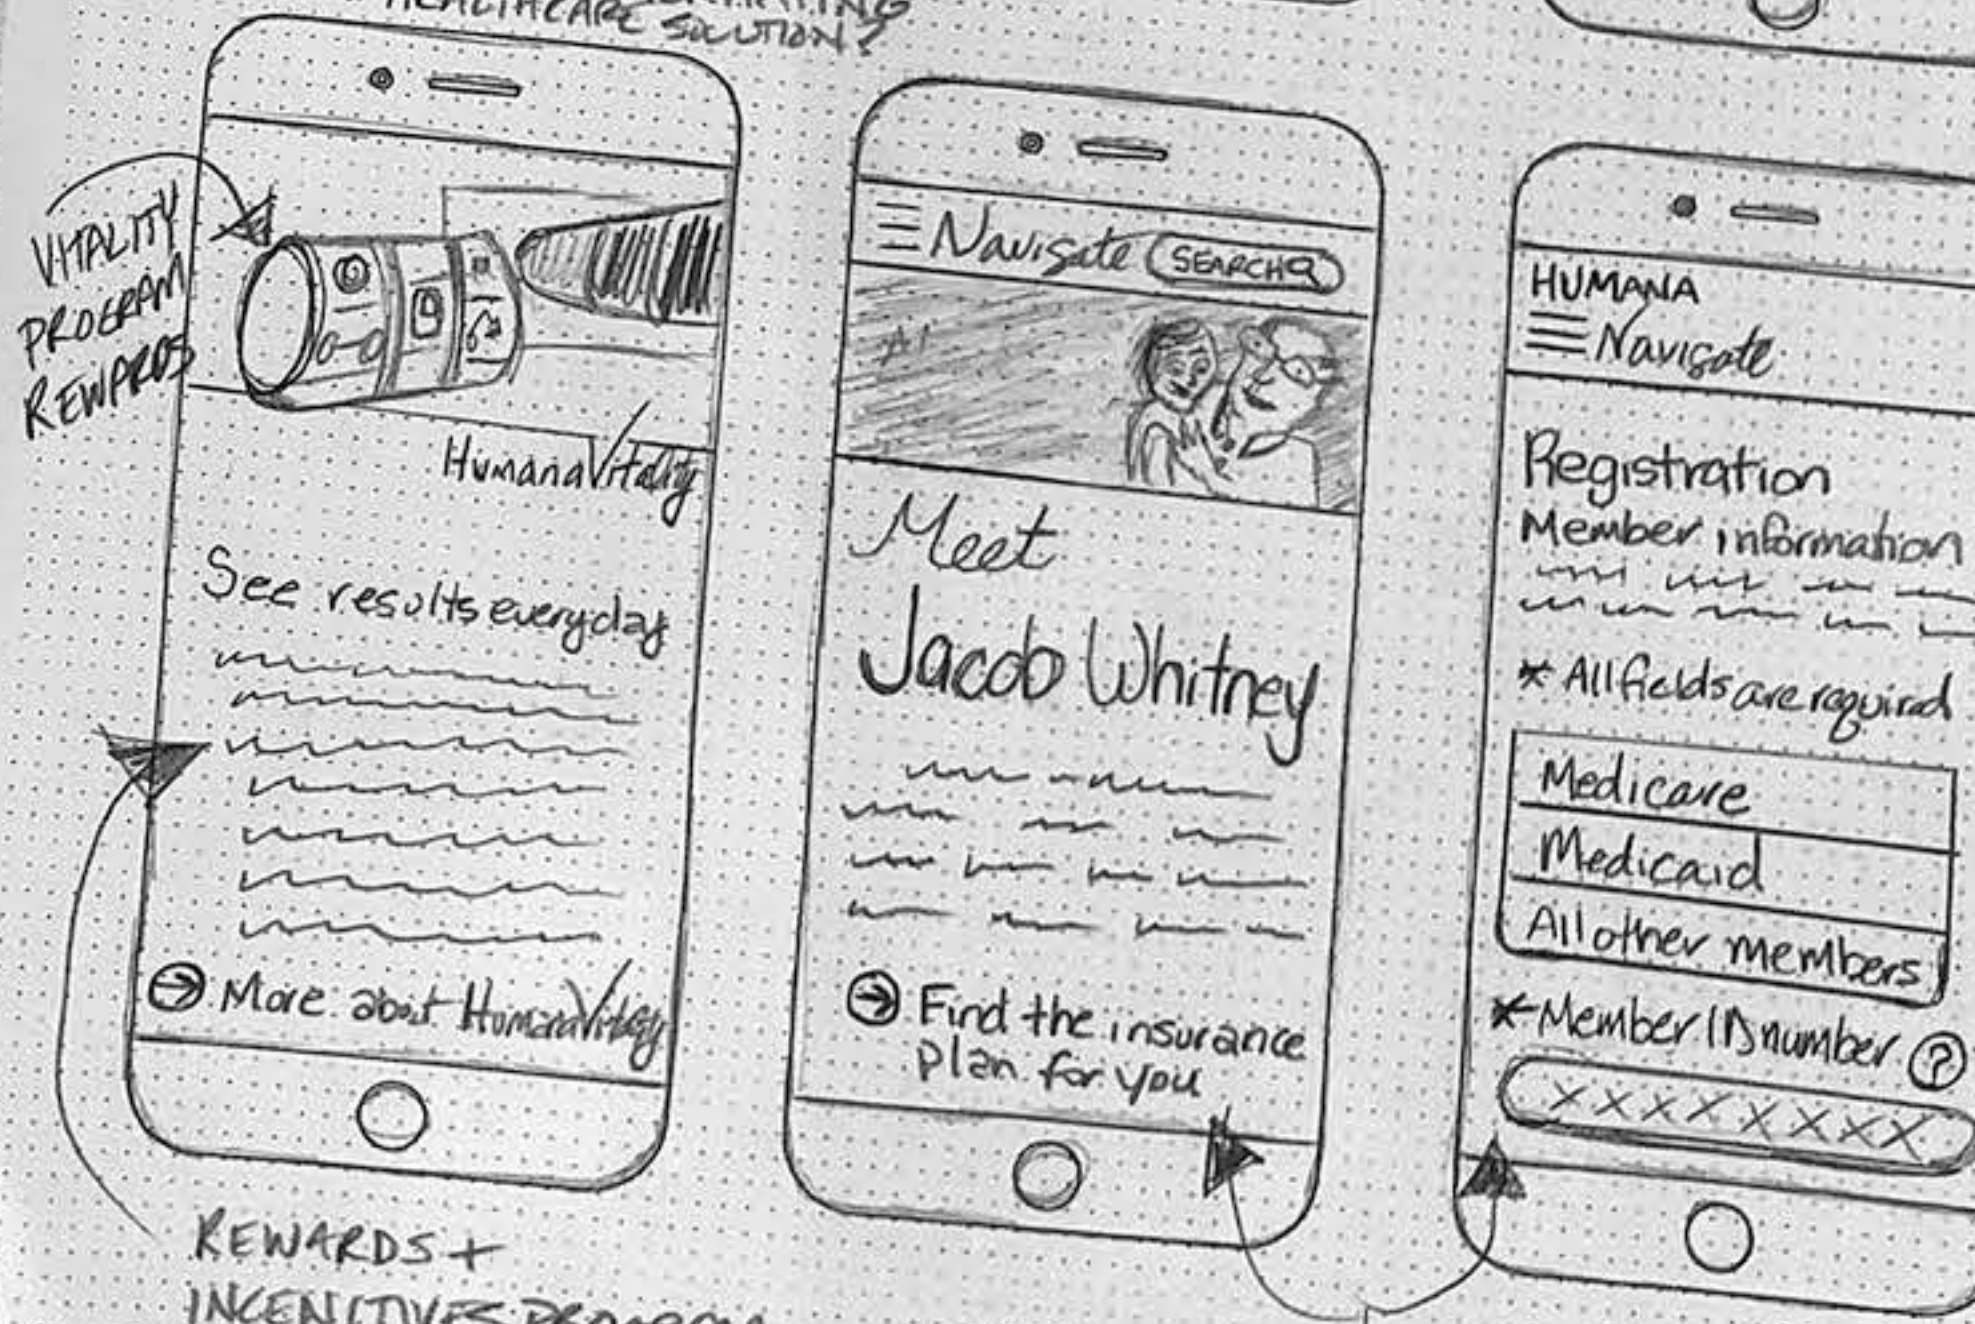 HEALTHCARE SOLUTION?
VITALITY
PROGRAM
REWARDS
HumanaVitality
See results everyday
More about HumanaVitality
REWARDS +
INCENITIVES PROGRAM
Navigate
SEARCH
Meet
Jacob Whitney
Find the insurance
plan for you
HUMANA
Navigate
Registration
Member information
* All fields are required
Medicare
Medicaid
All other members
* Member ID number ?
XXXXXXXX